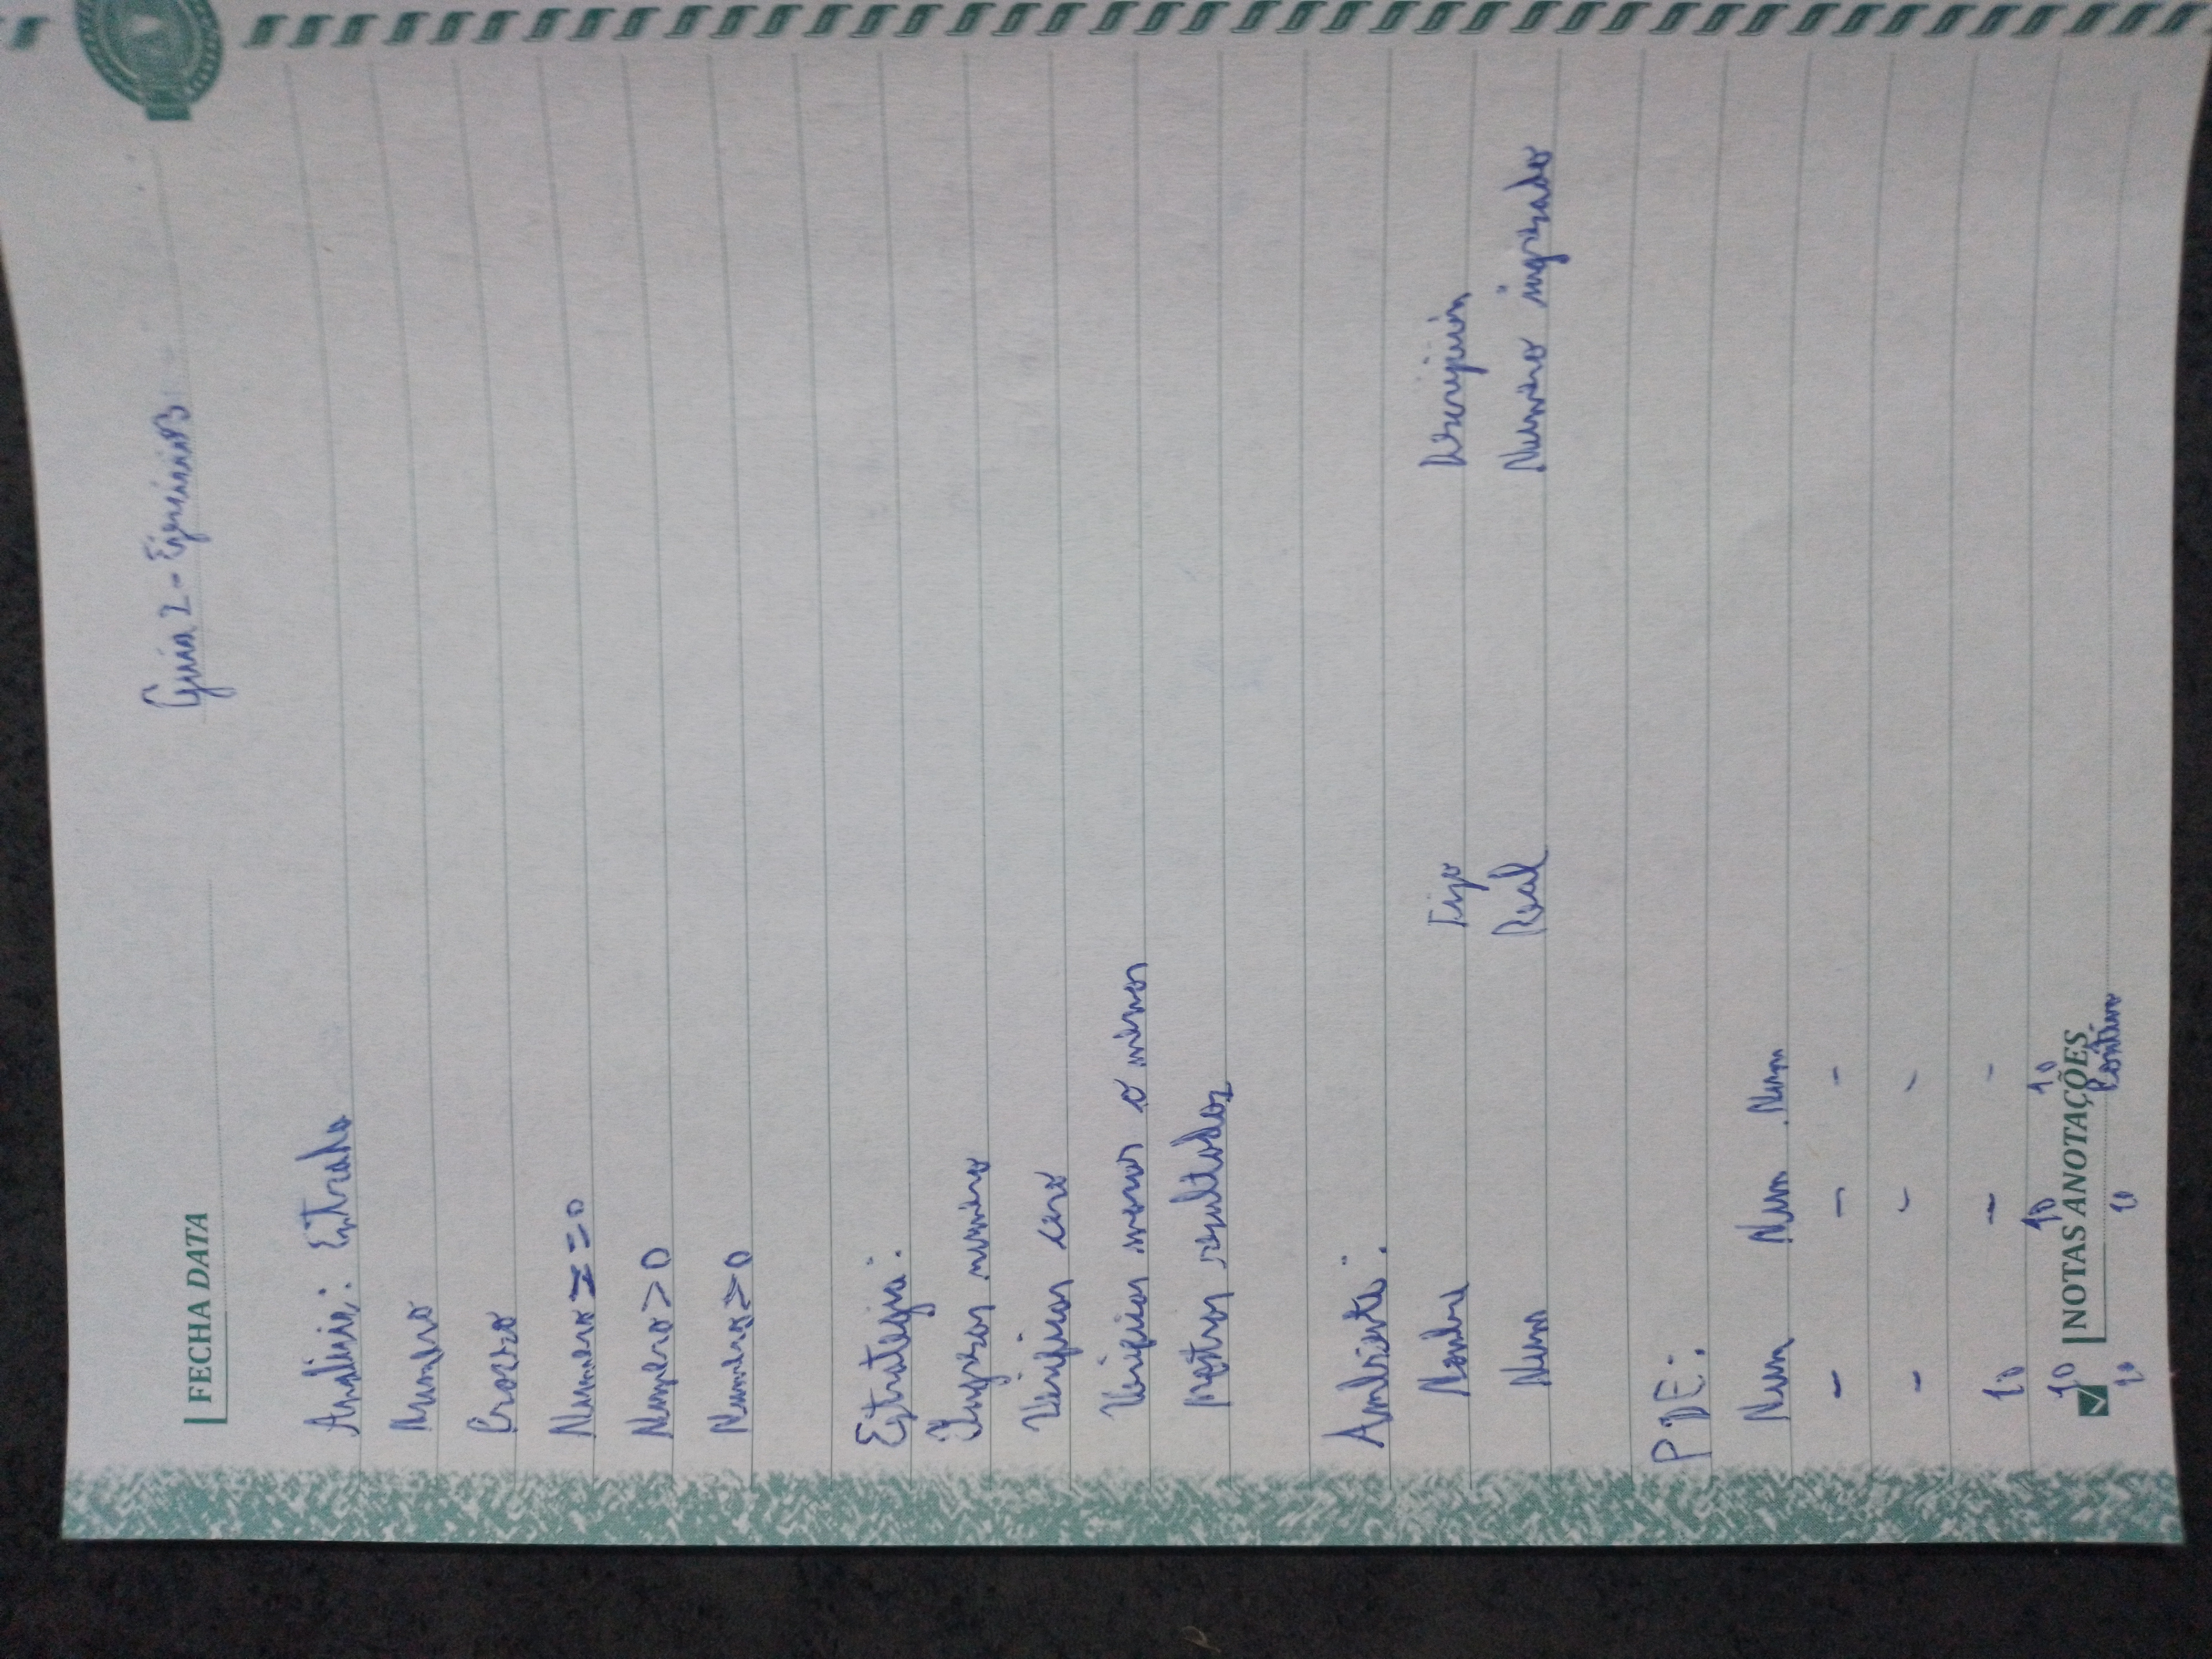 FECHA DATA
Guia 2 - Ejercicio 3
Analisis: Entrada
Numero
Numero == 0
Numero > 0
Numero > 0
Estrategia:
Ingresar numero
Verificar cero
Verificar o menor
Mostrar resultados
Ambiente:
Nombre Tipo Descripción
Num Real Numero ingresado
PDE:
Num Num Num
- - -
- - -
10 - -
10 10 10
NOTAS ANOTAÇÕES
10 10 Positivo